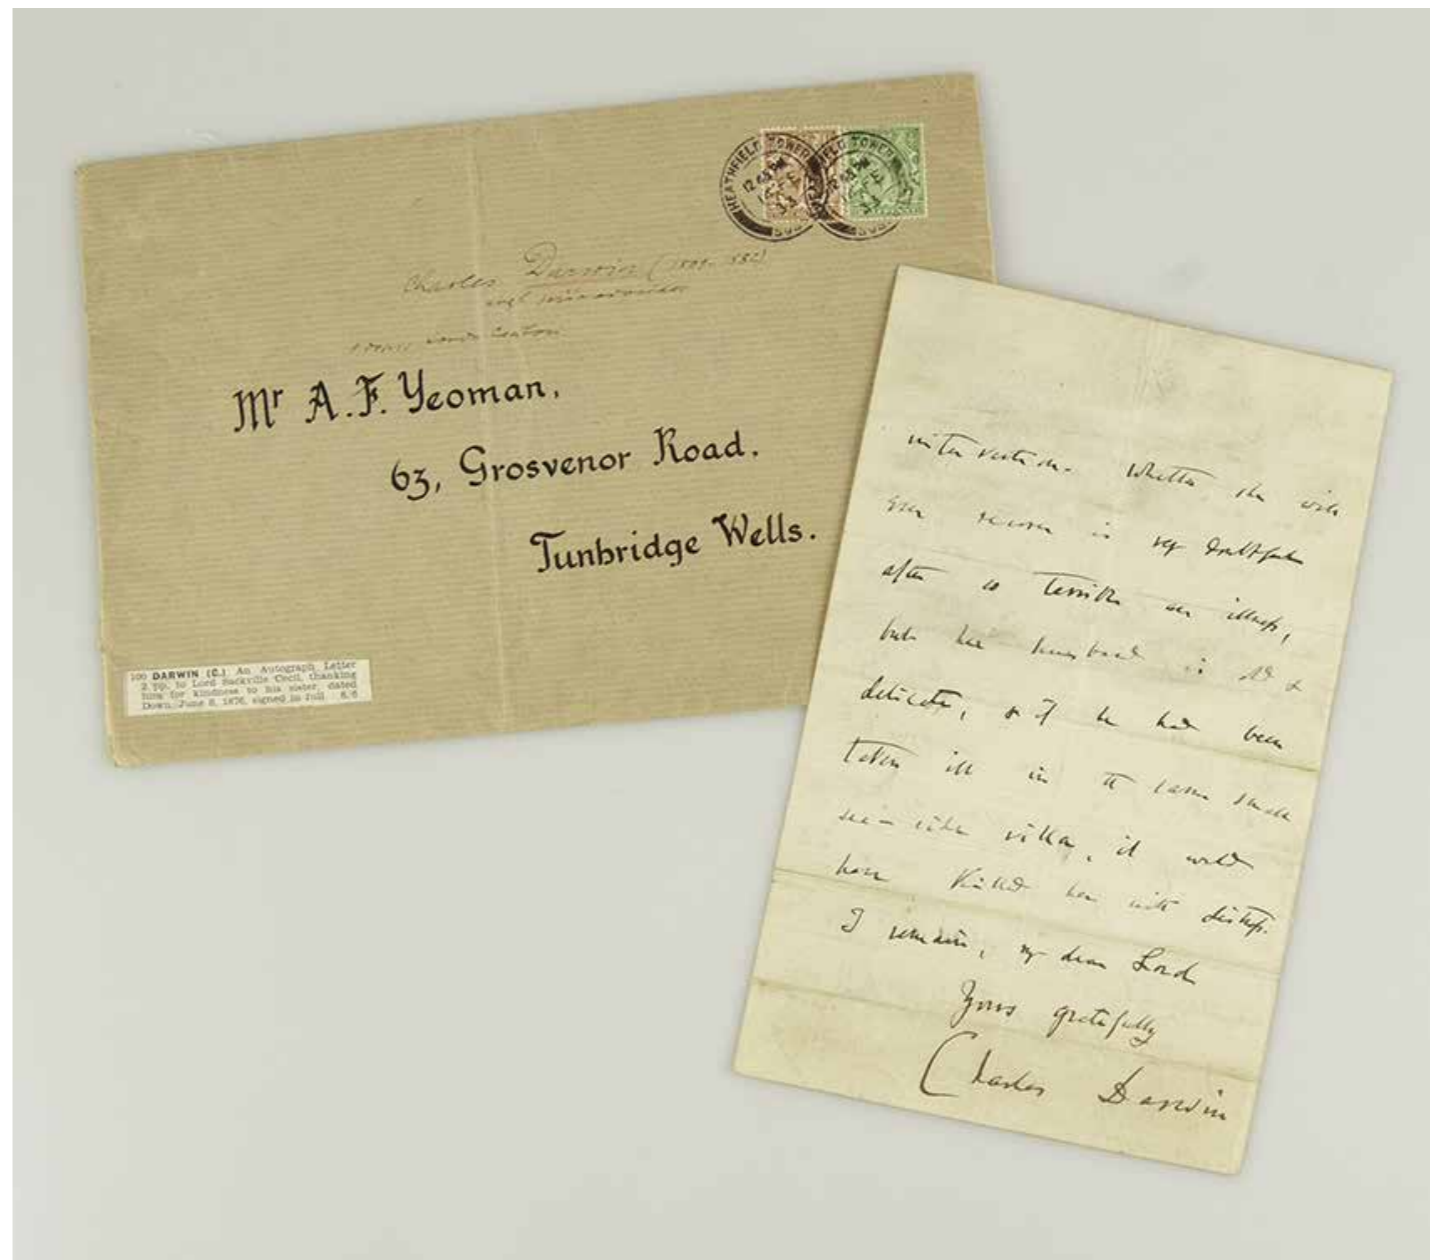 HEATHFIELD TOWER
12.45 PM
Charles Darwin (1809-1882)
Mr A.F. Yeoman,
63, Grosvenor Road.
Tunbridge Wells.
100 DARWIN (C.) An Autograph Letter
2 pp. to Lord Sackville Cecil, thanking
him for kindness to his sister, dated
Down, June 8, 1876, signed in full 6/6
Whether she will
ever recover is very doubtful
after so terrible an illness,
but her husband is old &
delicate, & if he had been
taken ill in the same small
sea-side villa, it would
have killed him with distress.
I remain, my dear Lord
Yours gratefully
Charles Darwin